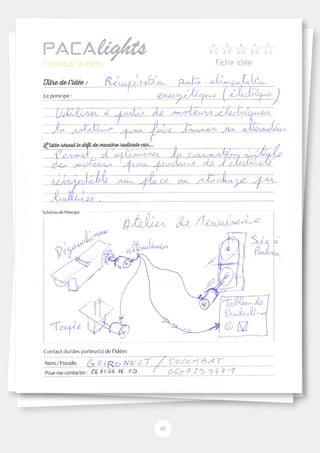 PACAlights
Fabrique à idées
Fiche idée
Titre de l'idée : Récupération auto-alimentation
Le principe : énergétique (électrique)
Utiliser à partir de moteurs électriques
la rotation pour faire tourner un alternateur
L'idée résout le défi de manière radicale car...
Permet d'optimiser la consommation
des moteurs pour produire de l'électricité
réinjectable sur place ou stockage par
batteries.
Schéma de Principe
Atelier de Menuiserie
Dégauchisseuse
alternateurs
Scie à
Ruban
Toupie
Tableau de
Production
Contact du/des porteur(s) de l'idées
Nom / Pseudo : GUIRONNET / COLOMBAT
Pour me contacter :